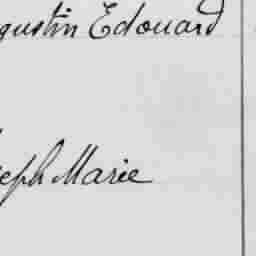 gustin Edouard
seph Marie